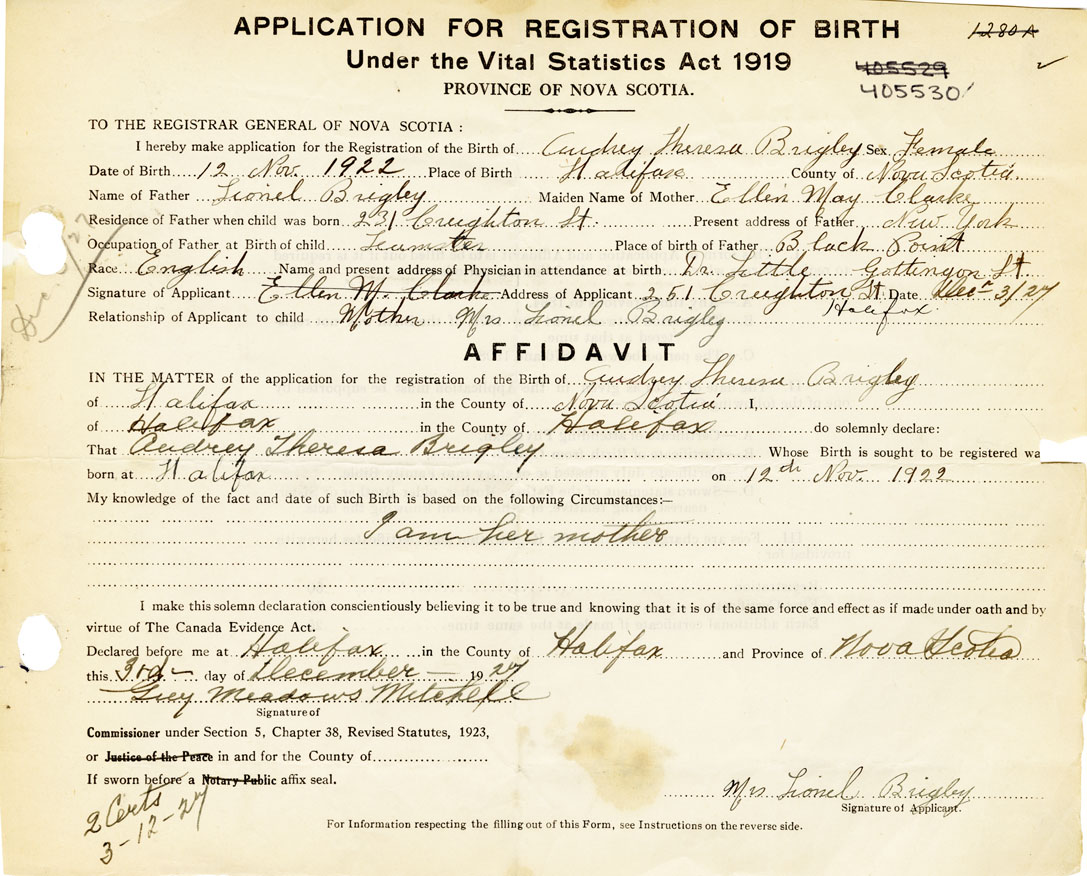 APPLICATION FOR REGISTRATION OF BIRTH
1280A
Under the Vital Statistics Act 1919
405529
PROVINCE OF NOVA SCOTIA.
405530
TO THE REGISTRAR GENERAL OF NOVA SCOTIA :
I hereby make application for the Registration of the Birth of Audrey Theresa Brigley Sex Female
Date of Birth 12 Nov. 1922 Place of Birth Halifax County of Nova Scotia
Name of Father Lionel Brigley Maiden Name of Mother Ellen May Clarke
Residence of Father when child was born 231 Creighton St. Present address of Father New York
Occupation of Father at Birth of child Teamster Place of birth of Father Black Point
Race English Name and present address of Physician in attendance at birth Dr. Little Gottingen St.
Signature of Applicant Ellen M. Clarke Address of Applicant 251 Creighton St. Date Dec 3/27
Halifax
Relationship of Applicant to child Mother Mrs Lionel Brigley
AFFIDAVIT
IN THE MATTER of the application for the registration of the Birth of Audrey Theresa Brigley
of Halifax in the County of Nova Scotia I,
of Halifax in the County of Halifax do solemnly declare:
That Audrey Theresa Brigley Whose Birth is sought to be registered wa
born at Halifax on 12th Nov. 1922
My knowledge of the fact and date of such Birth is based on the following Circumstances:—
I am her mother
I make this solemn declaration conscientiously believing it to be true and knowing that it is of the same force and effect as if made under oath and by
virtue of The Canada Evidence Act.
Declared before me at Halifax in the County of Halifax and Province of Nova Scotia
this 3rd day of December 1927
Guy Meadows Mitchell
Signature of
Commissioner under Section 5, Chapter 38, Revised Statutes, 1923,
or Justice of the Peace in and for the County of
If sworn before a Notary Public affix seal.
Mrs Lionel Brigley
Signature of Applicant.
2 Certs
3-12-27
For Information respecting the filling out of this Form, see Instructions on the reverse side.